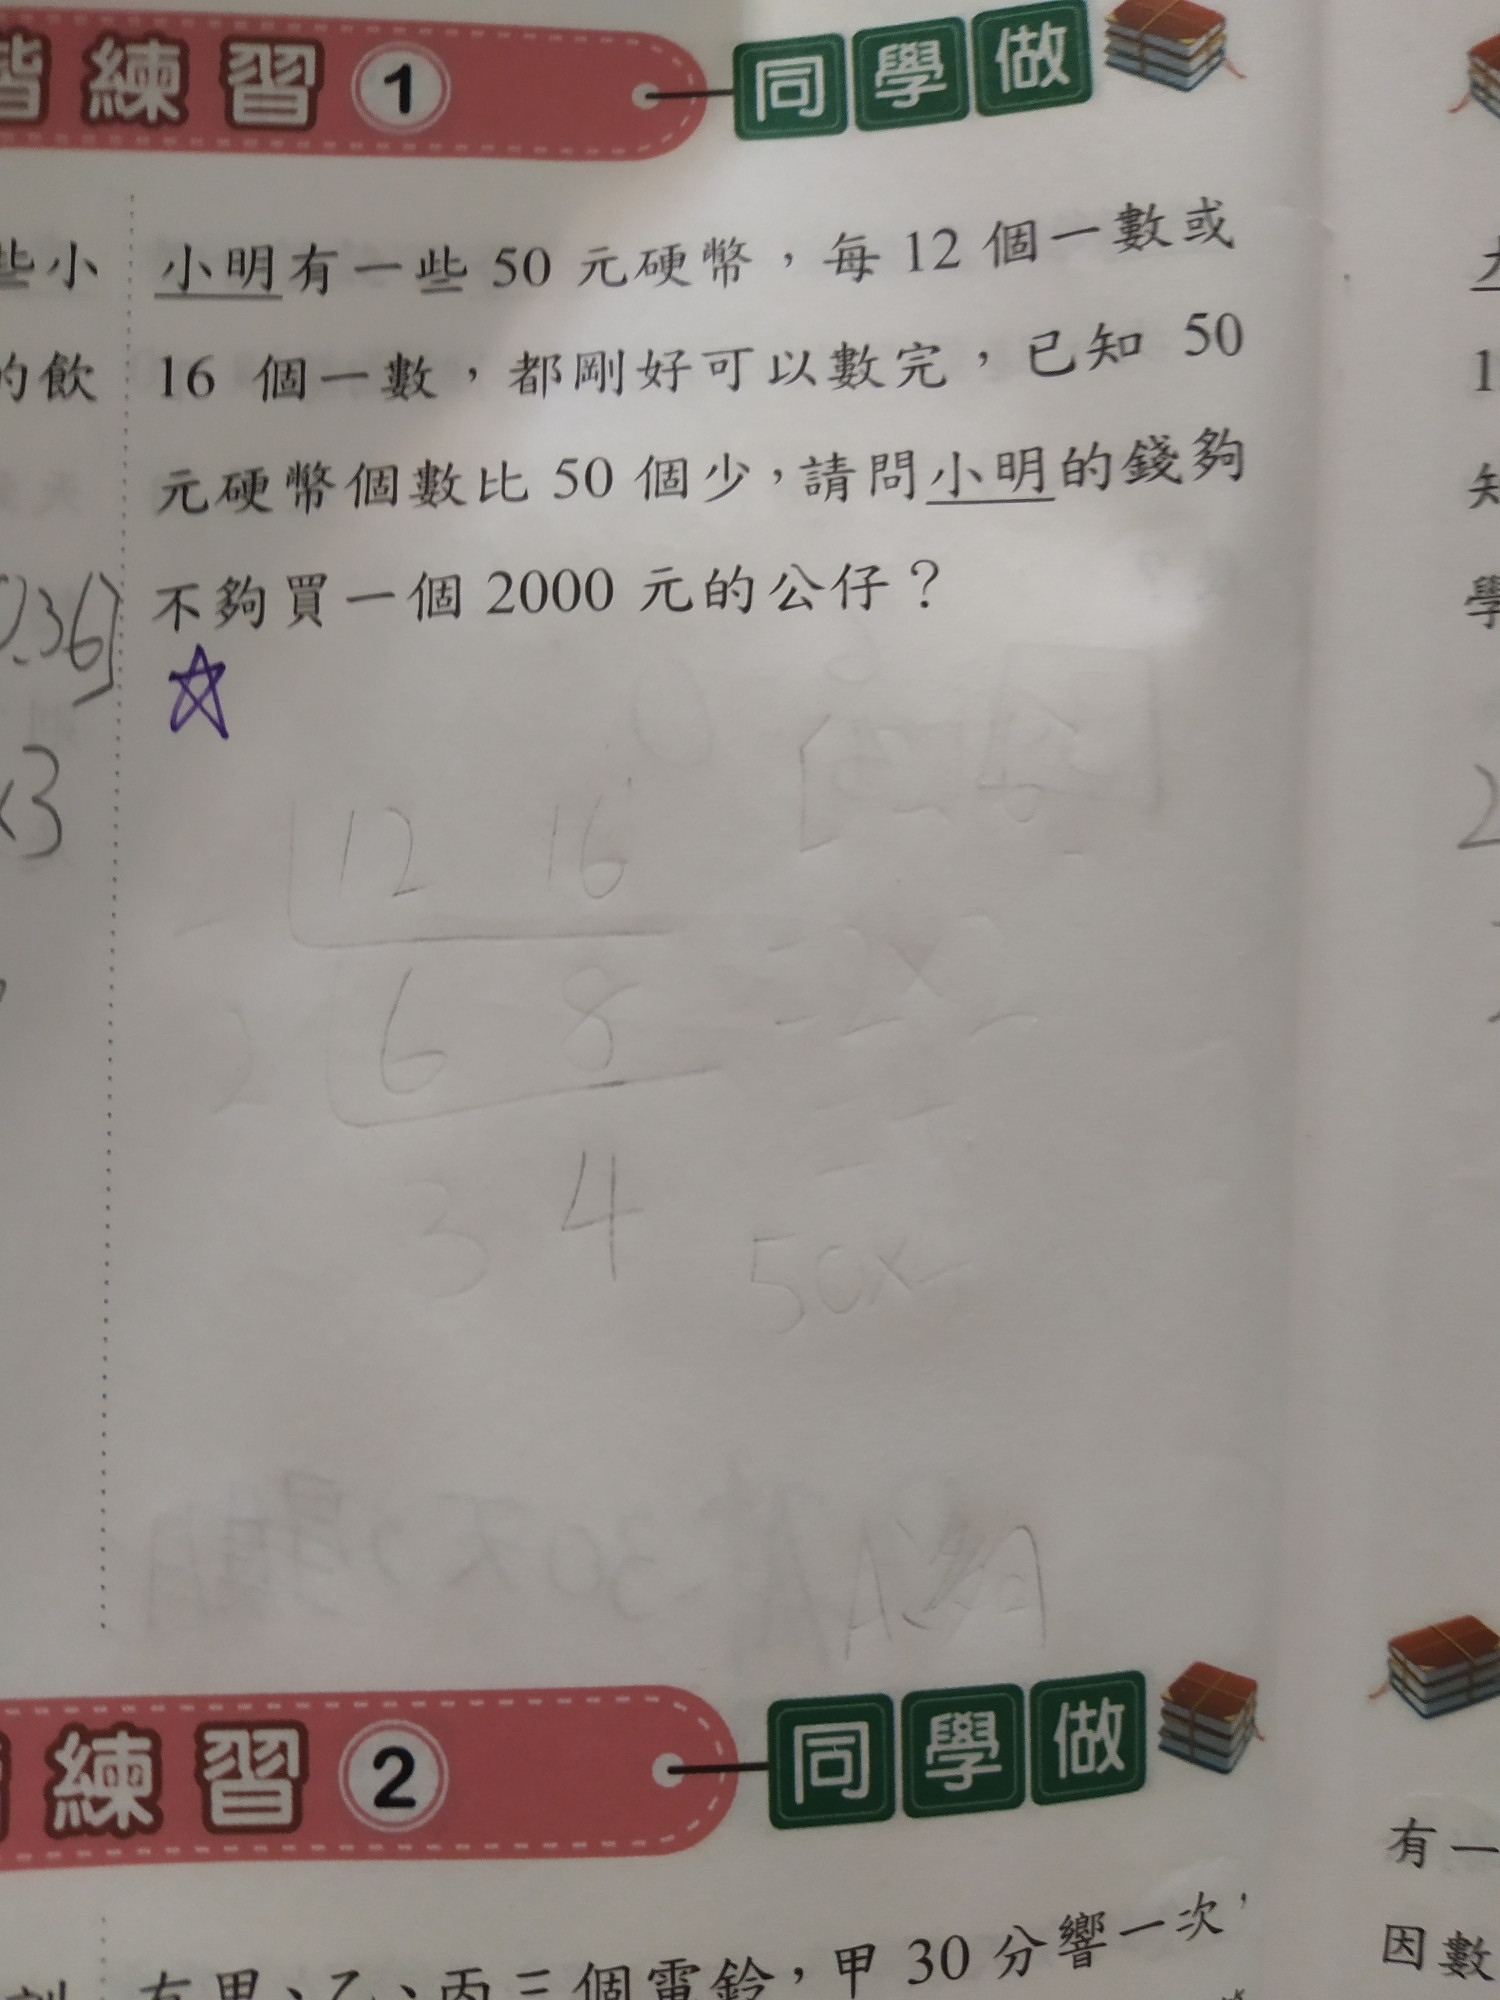 練習 1 同學做
些小
的飲
小明有一些 50 元硬幣，每 12 個一數或
16 個一數，都剛好可以數完，已知 50
元硬幣個數比 50 個少，請問小明的錢夠
不夠買一個 2000 元的公仔？
.36)
×3
12 16
2 6 8
3 4
50×
A:夠
1
知
學
練習 2 同學做
有甲、乙、丙三個電鈴，甲 30 分響一次，
有一
因數